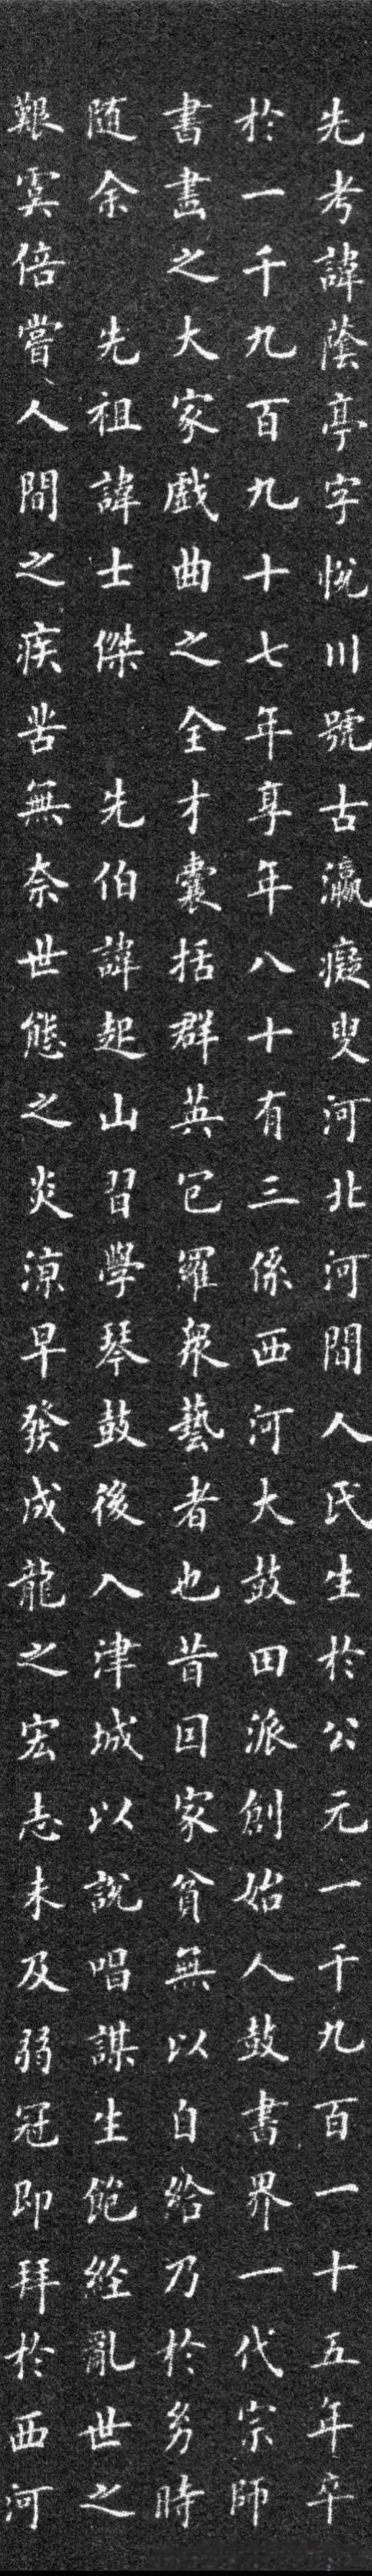 先考諱蔭亭字悅川號古瀛癡叟河北河間人氏生於公元一千九百一十五年卒
於一千九百九十七年享年八十有三係西河大鼓田派創始人鼓書界一代宗師
書畫之大家戲曲之全才囊括群英包羅衆藝者也昔因家貧無以自給乃於幼時
隨余 先祖諱士傑 先伯諱起山習學琴鼓後入津城以說唱謀生飽經亂世之
艱寞倍嘗人間之疾苦無奈世態之炎涼早發成龍之宏志未及弱冠即拜於西河